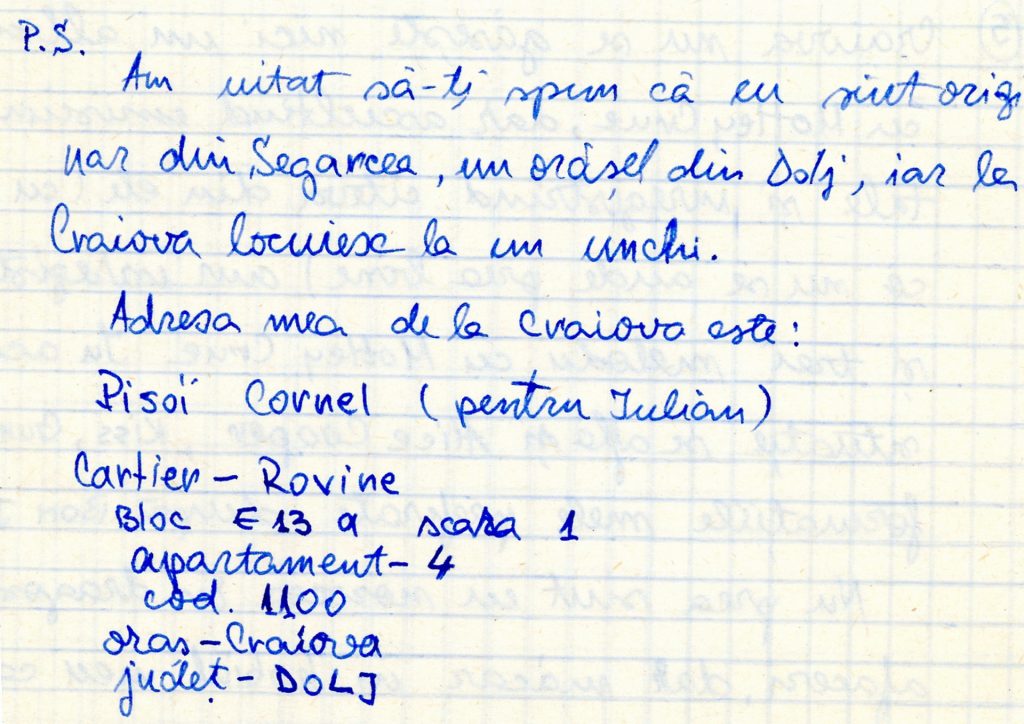 P.S.
Am uitat să-ți spun că eu sînt origi
nar din Segarcea, un orășel din Dolj, iar la
Craiova locuiesc la un unchi.
Adresa mea de la Craiova este:
Pisoi Cornel (pentru Iulian)
Cartier – Rovine
Bloc E 13 a scara 1
apartament – 4
cod. 1100
oraș – Craiova
județ – DOLJ